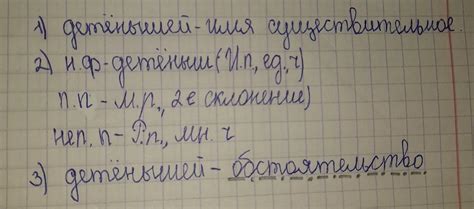 1) детёнышей-имя существительное.
2) н.ф-детёныш (И.п, ед.ч)
п.п - м.р., 2е склонение)
неп.п - Р.п., мн. ч
3) детёнышей - обстоятельство